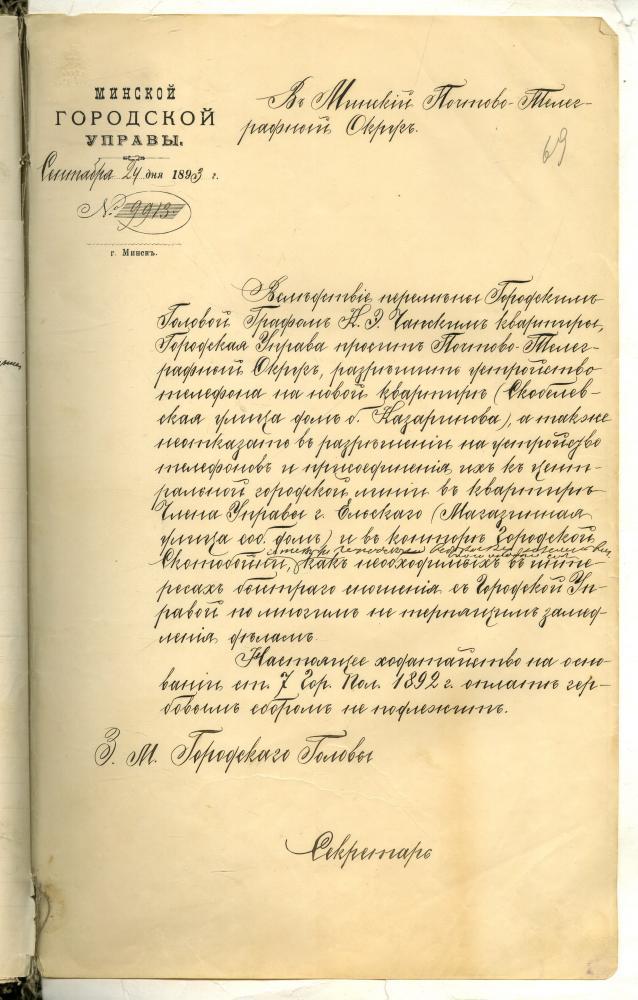 МИНСКОЙ
ГОРОДСКОЙ
УПРАВЫ.
Сентября 24 дня 1893 г.
№ 9913
г. Минскъ.
Въ Минскій Почтово-Телег-
рафный Округъ.
69
Вслѣдствіе перемѣны Городскимъ
Головой Графомъ К. Э. Чапскимъ квартиры,
Городская Управа проситъ Почтово-Телег-
рафный Округъ, разрѣшить устройство
телефона на новой квартирѣ (Скобелев-
ская улица домъ б. Казаринова), а также
неотказать въ разрѣшеніи на устройство
телефоновъ и присоединенія ихъ къ цент-
ральной городской линіи въ квартирѣ
Члена Управы г. Ельскаго (Магазинная
улица соб. домъ) и въ конторѣ Городской
Скотобойни, какъ необходимыхъ въ инте-
ресахъ быстраго сношенія съ Городской Уп-
равой по многимъ не терпящимъ замед-
ленія дѣламъ.
Настоящее ходатайство на осно-
ваніи ст. 7 Гор. Пол. 1892 г. оплатѣ гер-
бовымъ сборомъ не подлежитъ.
З. М. Городскаго Головы
Секретарь